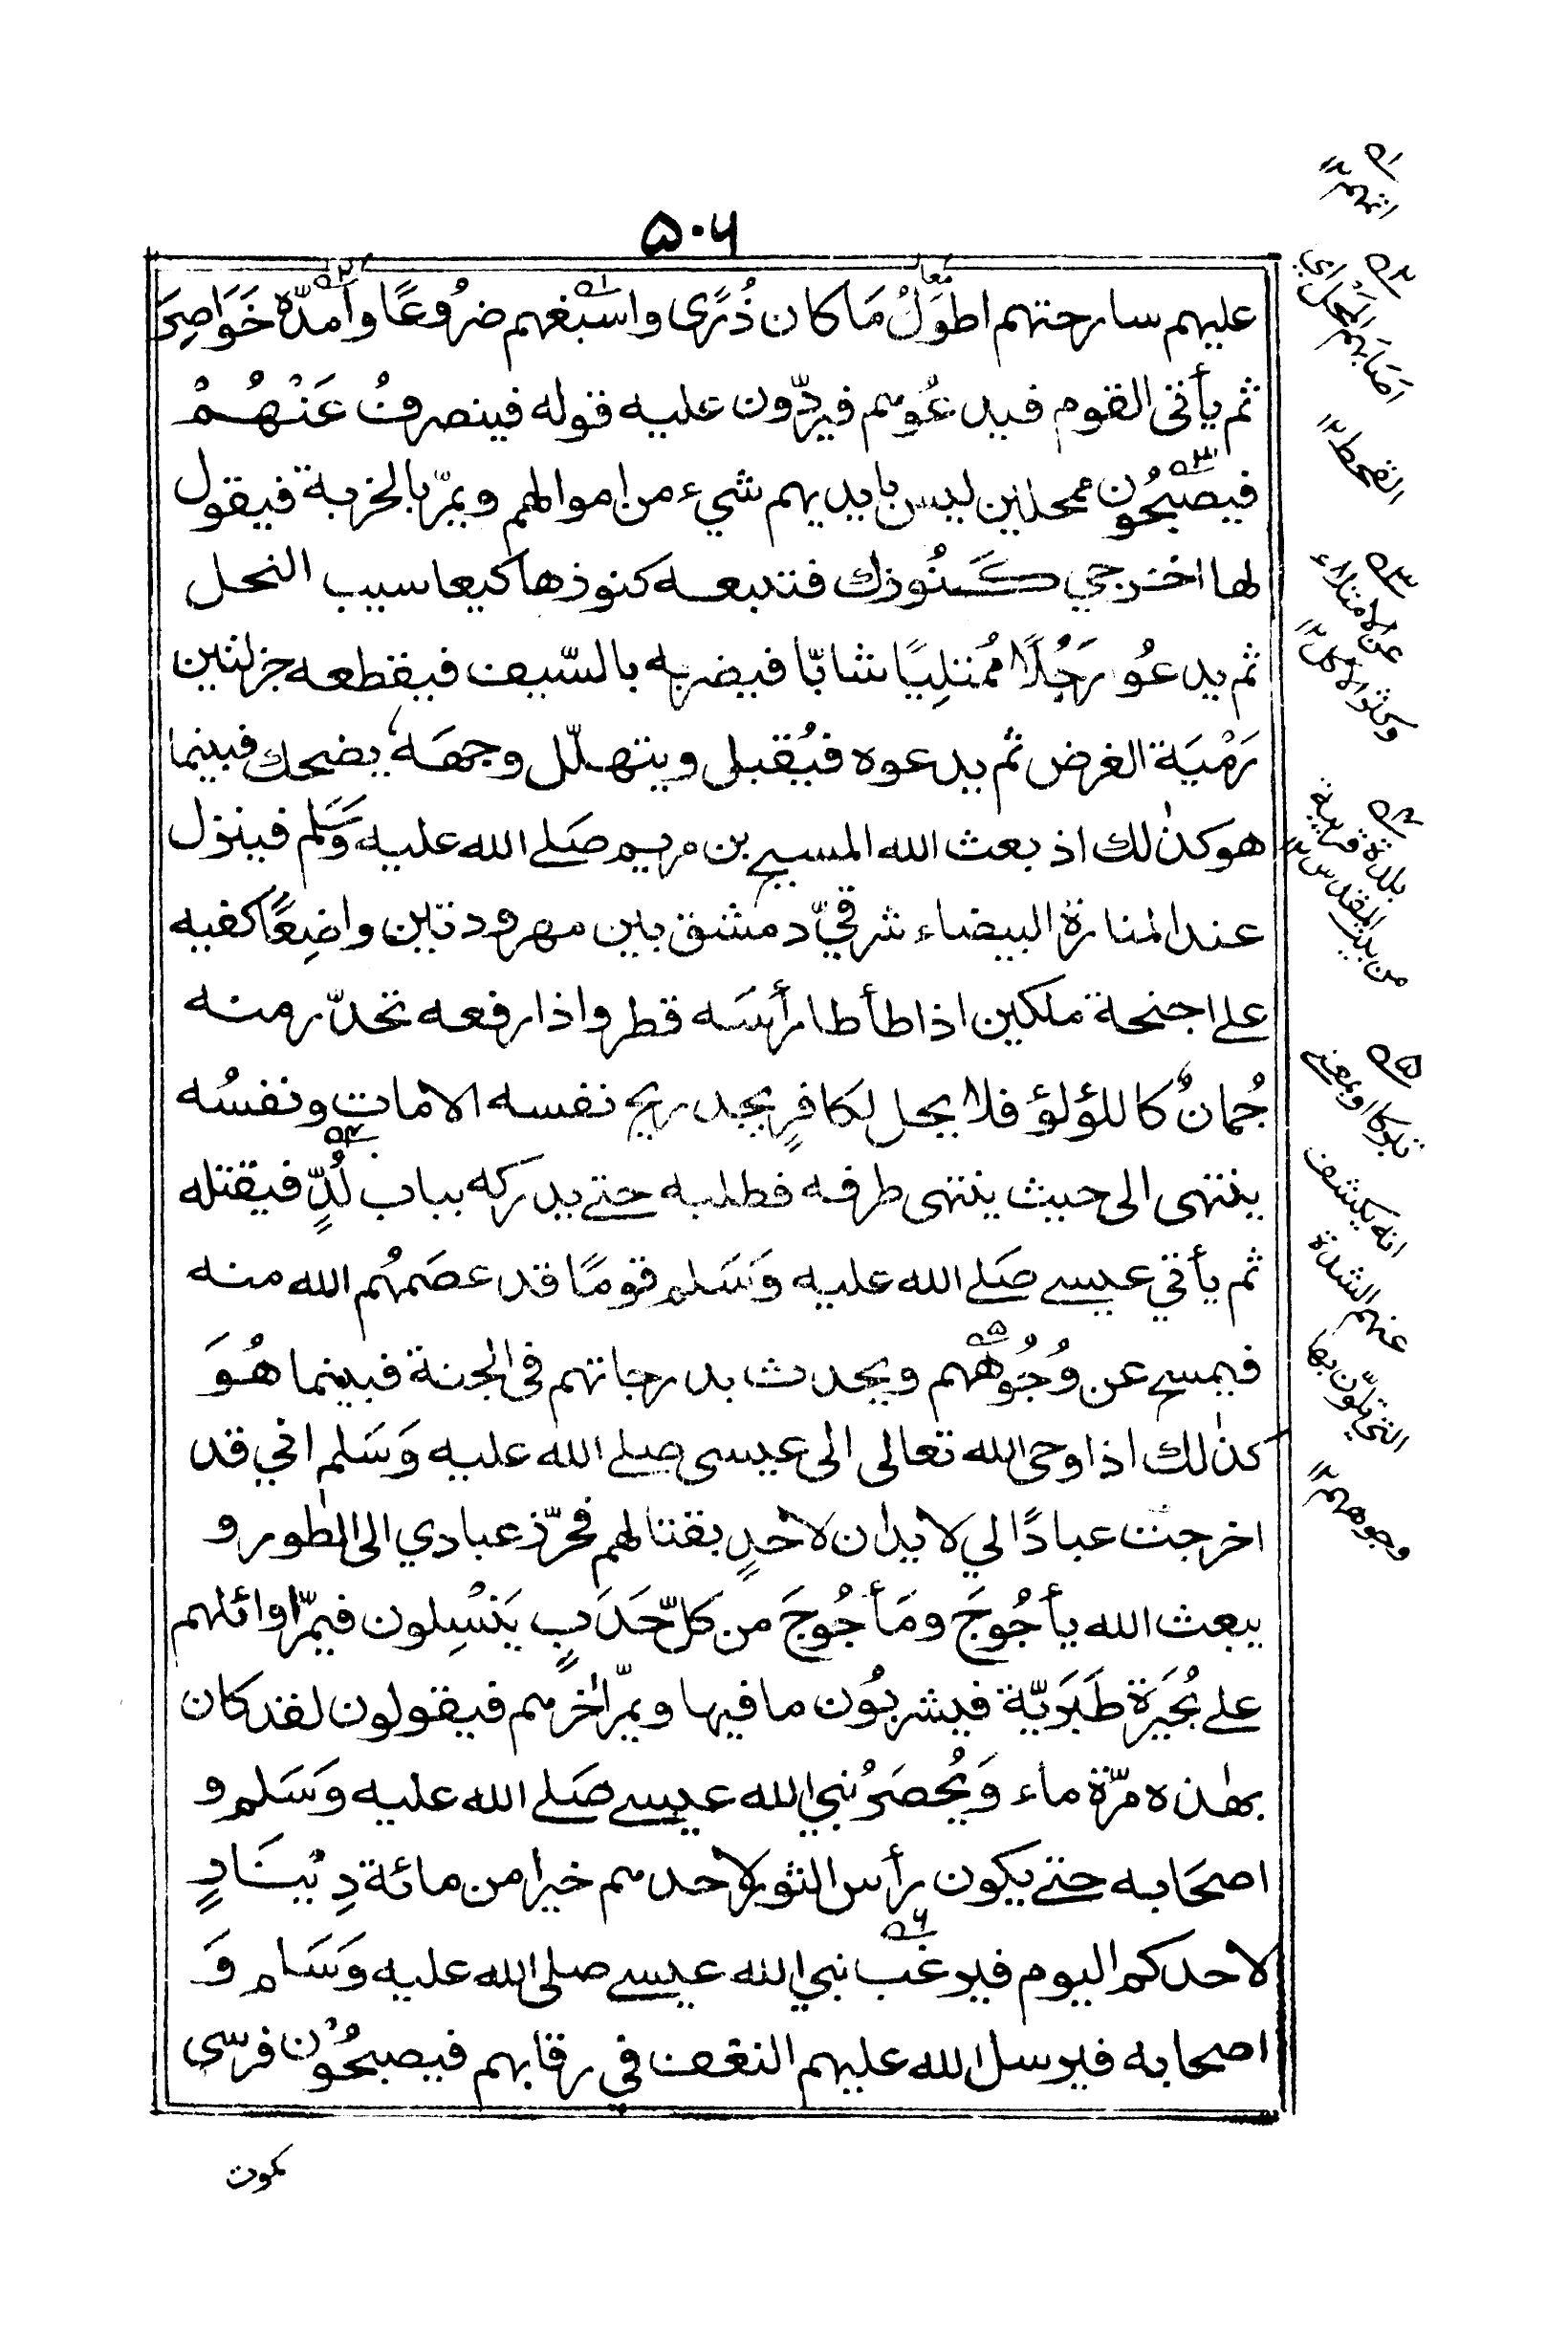 ۵۰۶
عليهم سارحتهم اطوَلُ مَا كان ذُرًى واسبغهم ضرُوعًا وامدّه خَوَاصِرَ
ثم يأتى القوم فيدعُوهم فيردّون عليه قوله فينصرفُ عَنْهُمْ
فيصّبحُون ممحلين ليس بايديهم شيء من اموالهم ويمرّ بالخربة فيقول
لها اخرجي كَنُوزك فتتبعه كنوزها كيعاسيب النحل
ثم يدعُو رَجُلًا مُمْتلِيًا شابّا فيضربه بالسّيف فيقطعه جزلتين
رَمْيَة الغرض ثم يدعوه فيُقبل ويتهلّل وجهَهُ يضحك فبينما
هو كذٰلك اذ بعث الله المسيح بن مريم صَلے الله عليه وَسَلم فينزل
عند المنارة البيضاء شرقيّ دمشق بين مهرودتين واضِعًا كفيه
علے اجنحة ملكين اذا طأطا رأسَه قطر واذا رفعه تحدّر منه
جُمانٌ كاللؤلؤ فلا يحل لكافرٍ يجد ريح نفسه الامات ونفسُه
ينتهى الى حيث ينتهى طرفه فطلبه حتے يدركه بباب لُدٍّ فيقتله
ثم يأتي عيسے صَلے الله عليه وَسَلم قومًا قد عصَمهُم الله منه
فيمسح عن وُجُوههم ويحدث بدرجاتهم فى الجنة فبينما هُوَ
كذٰلك اذ اوحى الله تعالى الى عيسى صلے الله عليه وَسَلم اني قد
اخرجت عبادًا لي لا يدان لاحدٍ بقتالهم فحرّز عبادي الى الطور و
يبعث الله يأجُوجَ ومَأجُوجَ من كلّ حَدَبٍ يَنْسِلون فيمرّ اوائلهم
علے بُحَيرَة طَبَرَيّة فيشربُون ما فيها ويمرّ اٰخرهم فيقولون لقد كان
بهٰذه مرّة ماء وَيُحصَرُ نبي الله عيسے صَلے الله عليه وَسَلم و
اصحَابه حتے يكون رأس الثور لاحدهم خيرا من مائة دِينَارٍ
لاحدكم اليوم فيرغب نبي الله عيسے صلى الله عليه وَسَلم وَ
اصحابه فيرسل الله عليهم النغف في رقابهم فيصبحُون فرسى
كموت
ا
اتمهم ١٢
٢
اصَابهم المحل اي
القحط ١٢
٣
عن الامتلاء
وكثرة الاكل ١٢
٤
بلدة قريبة
من بيت المقدس ١٢
٥
تبركا او بمعنے
انه يكشف
عنهم الشدة
التي تلون بها
وجوههم ١٢